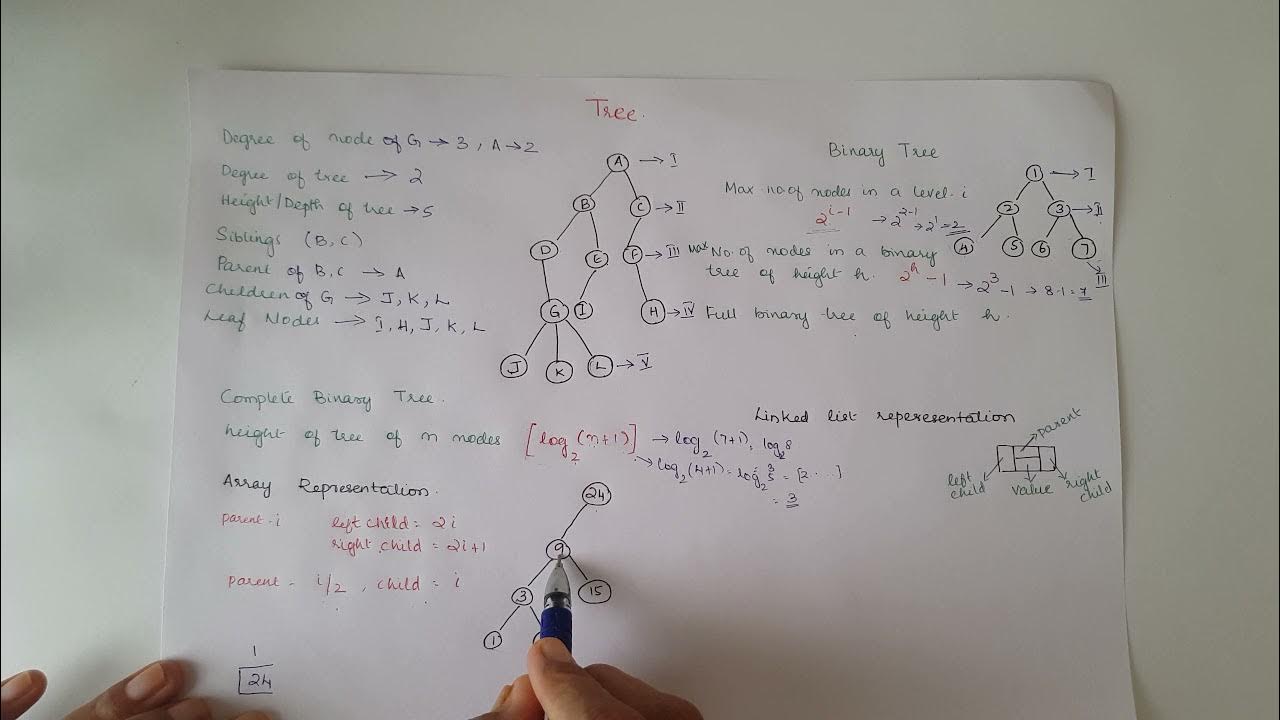 Tree.
Degree of node of G → 3, A → 2
Degree of tree → 2
Height/Depth of tree → 5
Siblings (B, C)
Parent of B, C → A
Children of G → J, K, L
Leaf Nodes → I, H, J, K, L
A → I
B C → II
D E F → III
G I H → IV
J K L → V
Binary Tree
Max no. of nodes in a level i
2^{i-1} → 2^{2-1} → 2^1 = 2
Max No. of nodes in a binary
tree of height h. 2^h - 1 → 2^3 - 1 → 8-1 = 7
Full binary tree of height h.
1 → I
2 3 → II
4 5 6 7
III
Complete Binary Tree.
height of tree of n nodes [log_2 (n+1)] → log_2 (7+1), log_2 8
→ log_2 (4+1) = log_2 5 = [2.....]
3
= 3
Linked list representation
parent
left child value right child
Array Representation.
parent - i left child = 2i
right child = 2i+1
parent - i/2, child = i
24
9
3 15
1
1
24